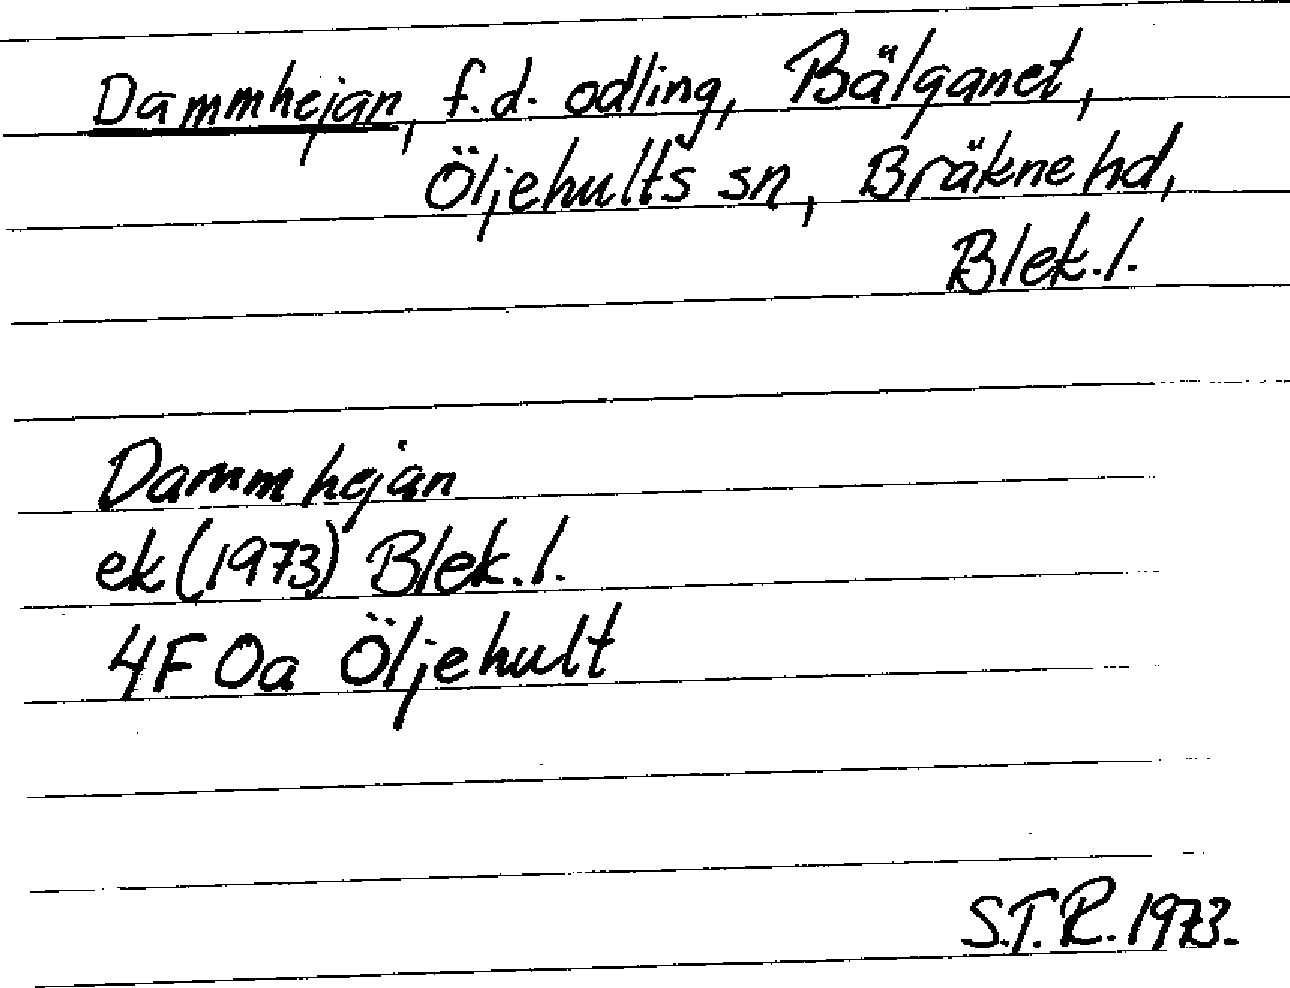 Dammhejan, f.d. odling, Bälganet,
Öljehults sn, Bräkne hd,
Blek.l.
Dammhejan
ek (1973) Blek.l.
4F 0a Öljehult
S.T.R. 1973.